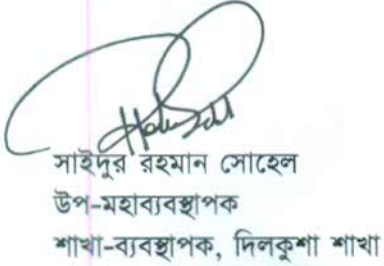 সাইদুর রহমান সোহেল
উপ-মহাব্যবস্থাপক
শাখা-ব্যবস্থাপক, দিলকুশা শাখা